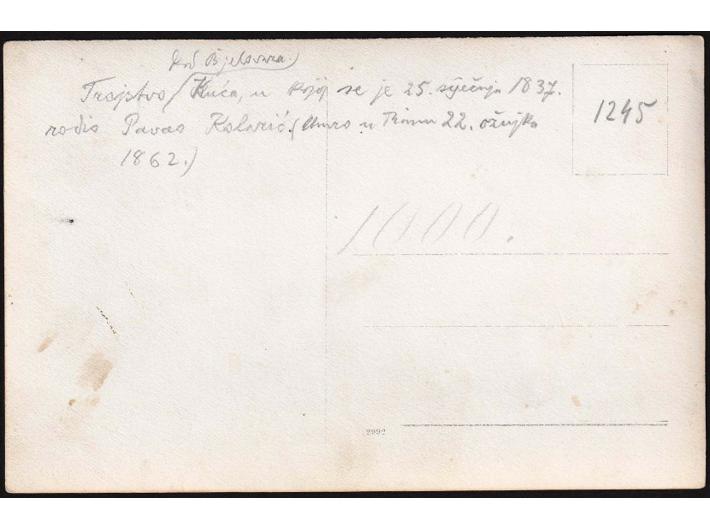 kod Bjelovara.)
Trojstvo (Kuća, u kojoj se je 25. siječnja 1837.
rodio Pavao Kolarić. (Umro u Rimu 22. ožujka
1862.)
1245
1000.
2992